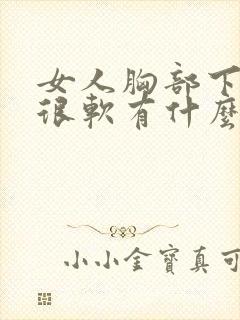 女人胸部下
很軟有什麼
小小金寶真可